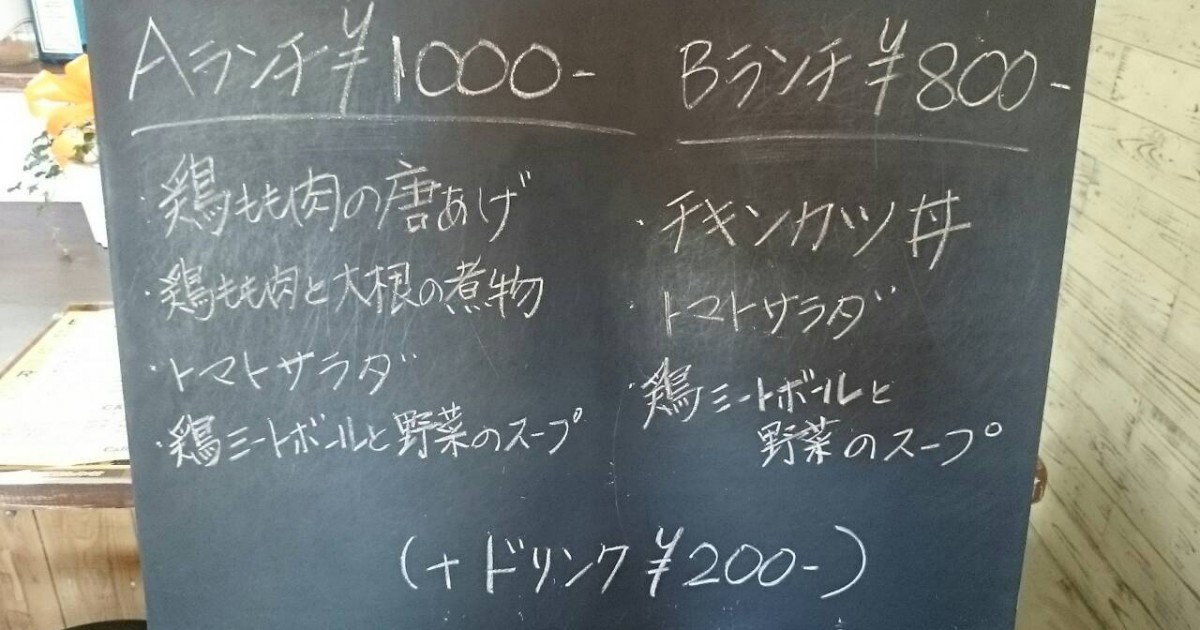 Aランチ¥1000-
・鶏もも肉の唐あげ
・鶏もも肉と大根の煮物
・トマトサラダ
・鶏ミートボールと野菜のスープ
Bランチ¥800-
・チキンカツ丼
・トマトサラダ
・鶏ミートボールと
野菜のスープ
(+ドリンク¥200-)